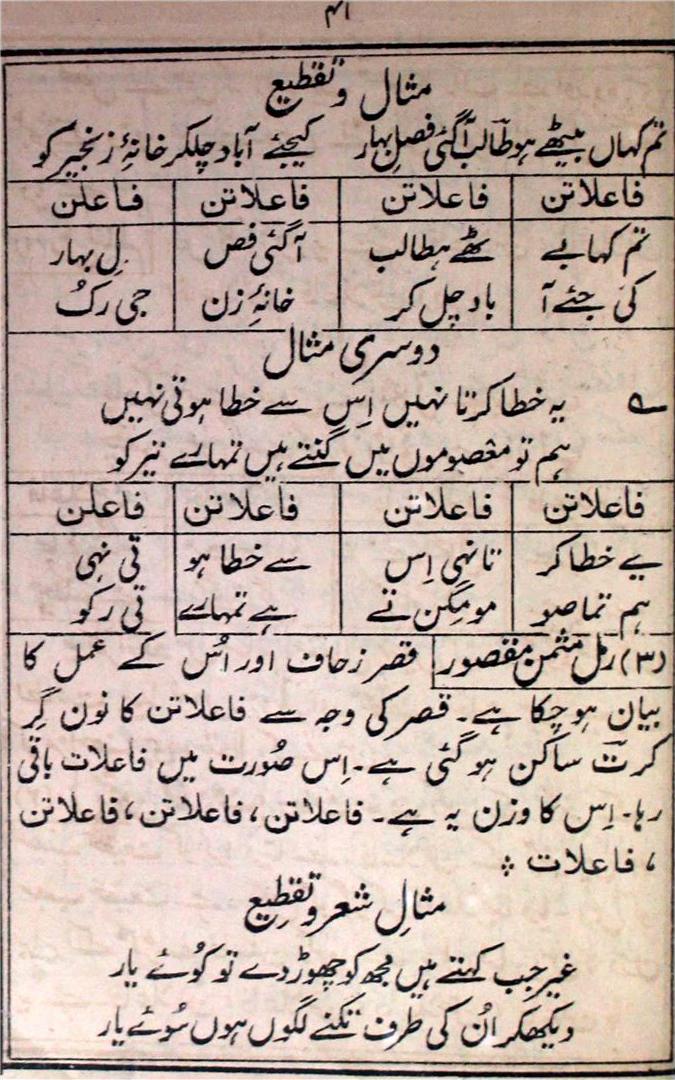 ۴۱
مثال و تقطیع
تم کہاں بیٹھے ہو طالب آگئی فصل بہار کیجئے آباد چلکر خانۂ زنجیر کو
فاعلاتن فاعلاتن فاعلاتن فاعلن
تم کہا بے ٹھے ہطالب آگئی فص لِ بہار
کی جئے آ باد چل کر خانۂ زن جی رکُ
دوسری مثال
؎ یہ خطا کرتا نہیں اِس سے خطا ہوتی نہیں
ہم تو معصوموں میں گنتے ہیں تمہارے تیر کو
فاعلاتن فاعلاتن فاعلاتن فاعلن
یے خطا کر تا نہی اِس سے خطا ہو تی نہی
ہم تماصو مو مگن تے ہے تمہارے تی رکو
(۳) رمل مثمن مقصور قصر زحاف اور اُس کے عمل کا
بیان ہو چکا ہے۔ قصر کی وجہ سے فاعلاتن کا نون گِر
کر ت ساکن ہو گئی ہے۔ اِس صُورت میں فاعلات باقی
رہا۔ اِس کا وزن یہ ہے۔ فاعلاتن، فاعلاتن، فاعلاتن
، فاعلات ؞
مثالِ شعر و تقطِیع
غیر جب کہتے ہیں مجھ کو چھوڑ دے تو کُوئے یار
دیکھکر اُن کی طرف تکنے لگوں ہوں سُوئے یار